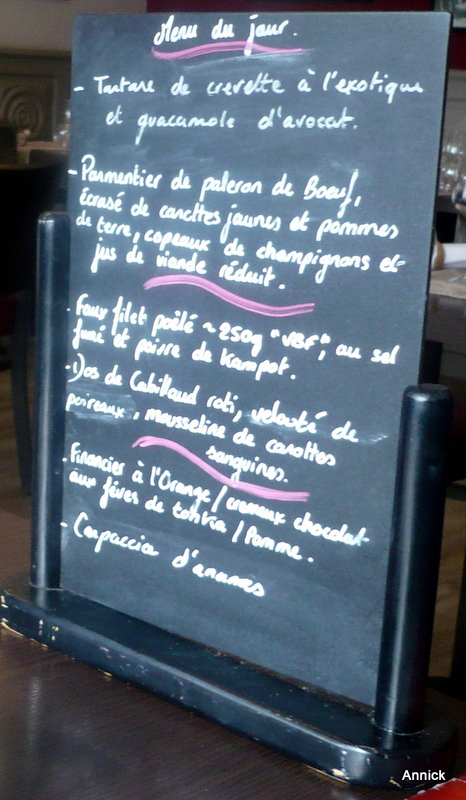 Menu du jour.
- Tartare de crevette à l'exotique
et guacamole d'avocat.
- Parmentier de paleron de Boeuf,
écrasé de carottes jaunes et pommes
de terre, copeaux de champignons et
jus de viande réduit.
. Faux filet poêlé ~ 250g "VBF", au sel
fumé et poivre de Kampot.
- Dos de Cabillaud roti, velouté de
poireaux, mousseline de carottes
sanguines.
. Financier à l'Orange / cremeux chocolat
aux fèves de tonka / Pomme.
- Carpaccio d'ananas
Annick